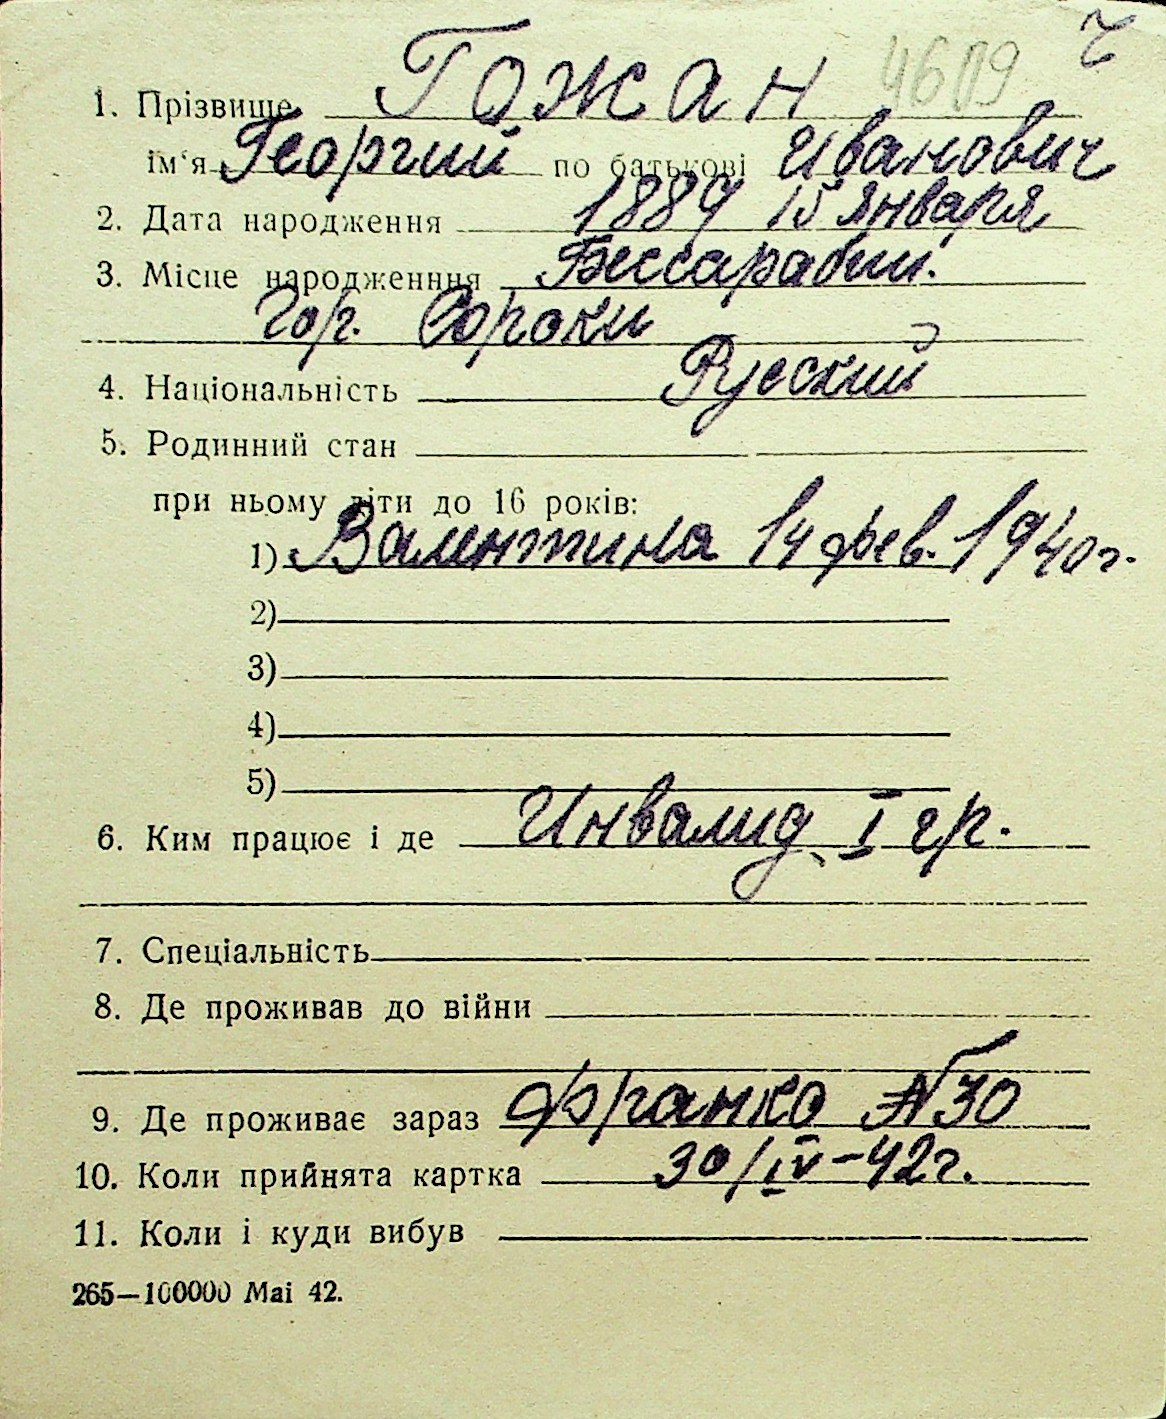 ч
4609
1. Прізвище Гожан
ім‘я Георгий по батькові Иванович
2. Дата народження 1889 15 января
3. Місце народженння Бессарабии.
Гор. Сороки
4. Національність Русский
5. Родинний стан
при ньому діти до 16 років:
1) Валентина 14 фев. 1940г.
2)
3)
4)
5)
6. Ким працює і де Инвалид I гр.
7. Спеціальність
8. Де проживав до війни
9. Де проживає зараз Франко №30
10. Коли прийнята картка 30/IV-42г.
11. Коли і куди вибув
265—100000 Mai 42.